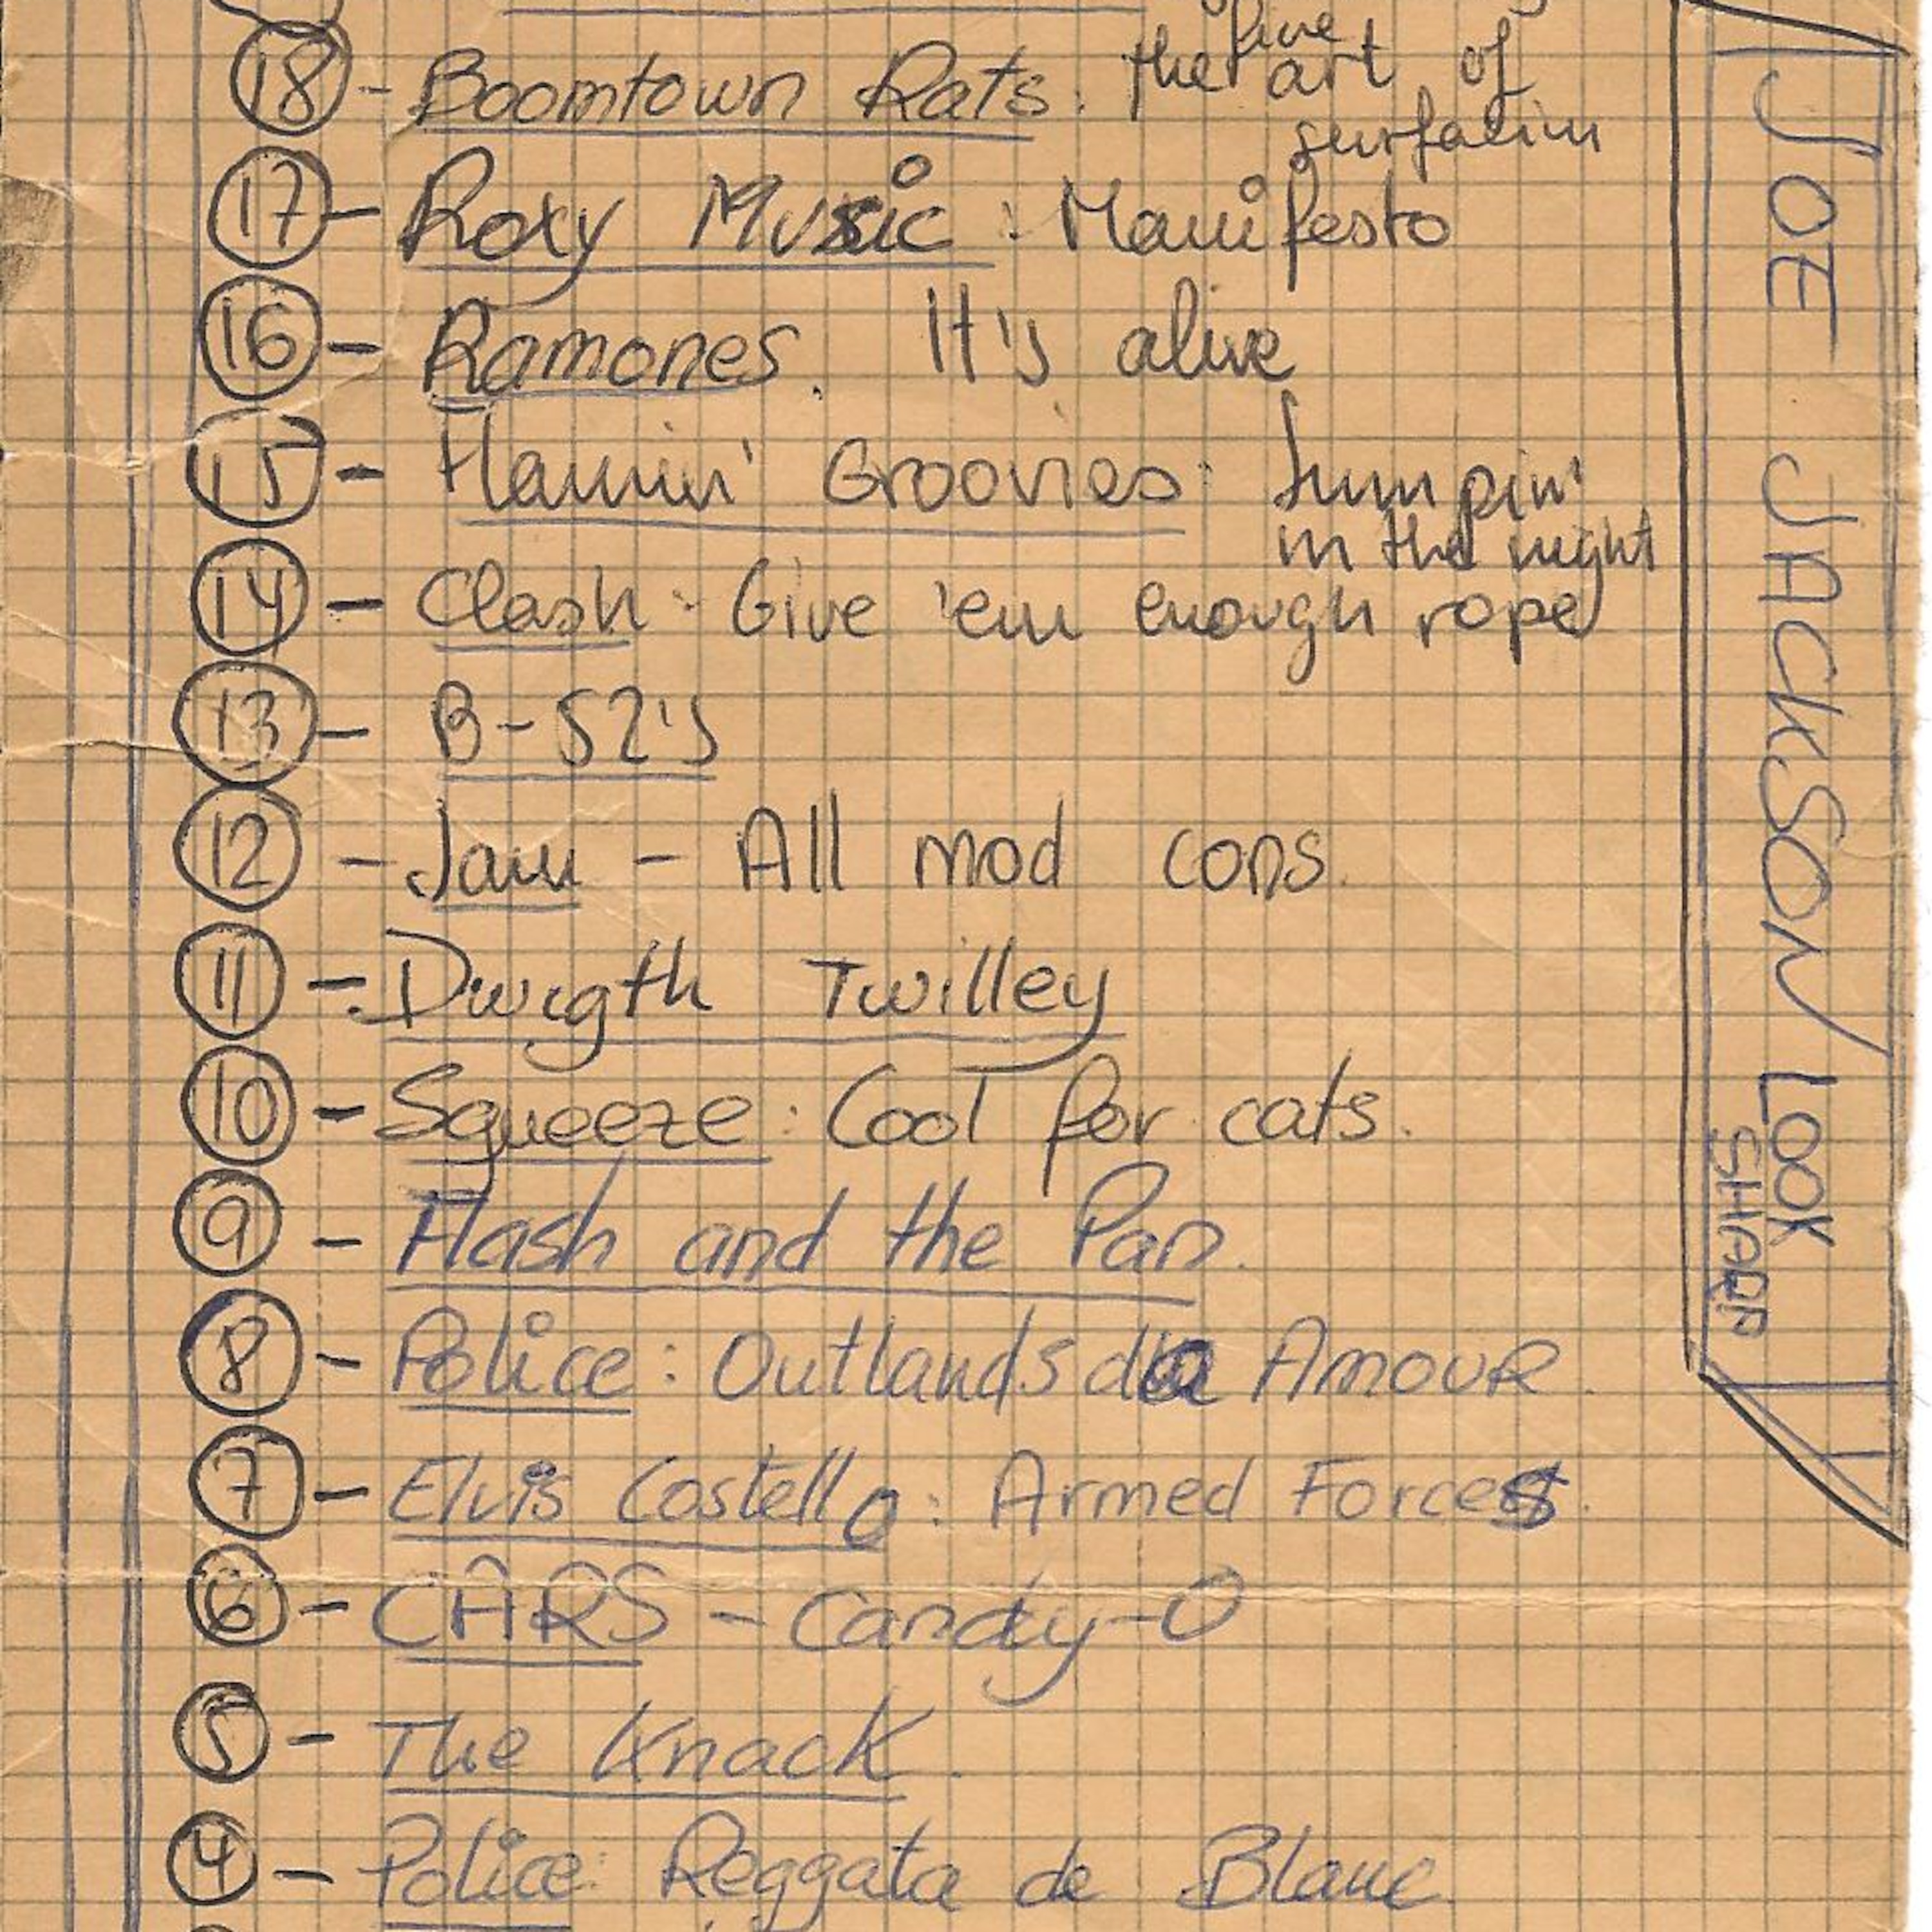 18 - Boomtown Rats: the fine art of
surfacin
17 - Roxy Music: Manifesto
16 - Ramones. It's alive
15 - Flamin' Groovies: Jumpin'
in the night
14 - Clash: Give 'em enough rope
13 - B-52's
12 - Jam - All mod cons.
11 - Dwigth Twilley
10 - Squeeze: Cool for cats.
9 - Flash and the Pan.
8 - Police: Outlands d'a Amour.
7 - Elvis Costello: Armed Forces.
6 - CARS - Candy-O
5 - The Knack.
4 - Police: Reggata de Blanc
JOE JACKSON LOOK
SHARP